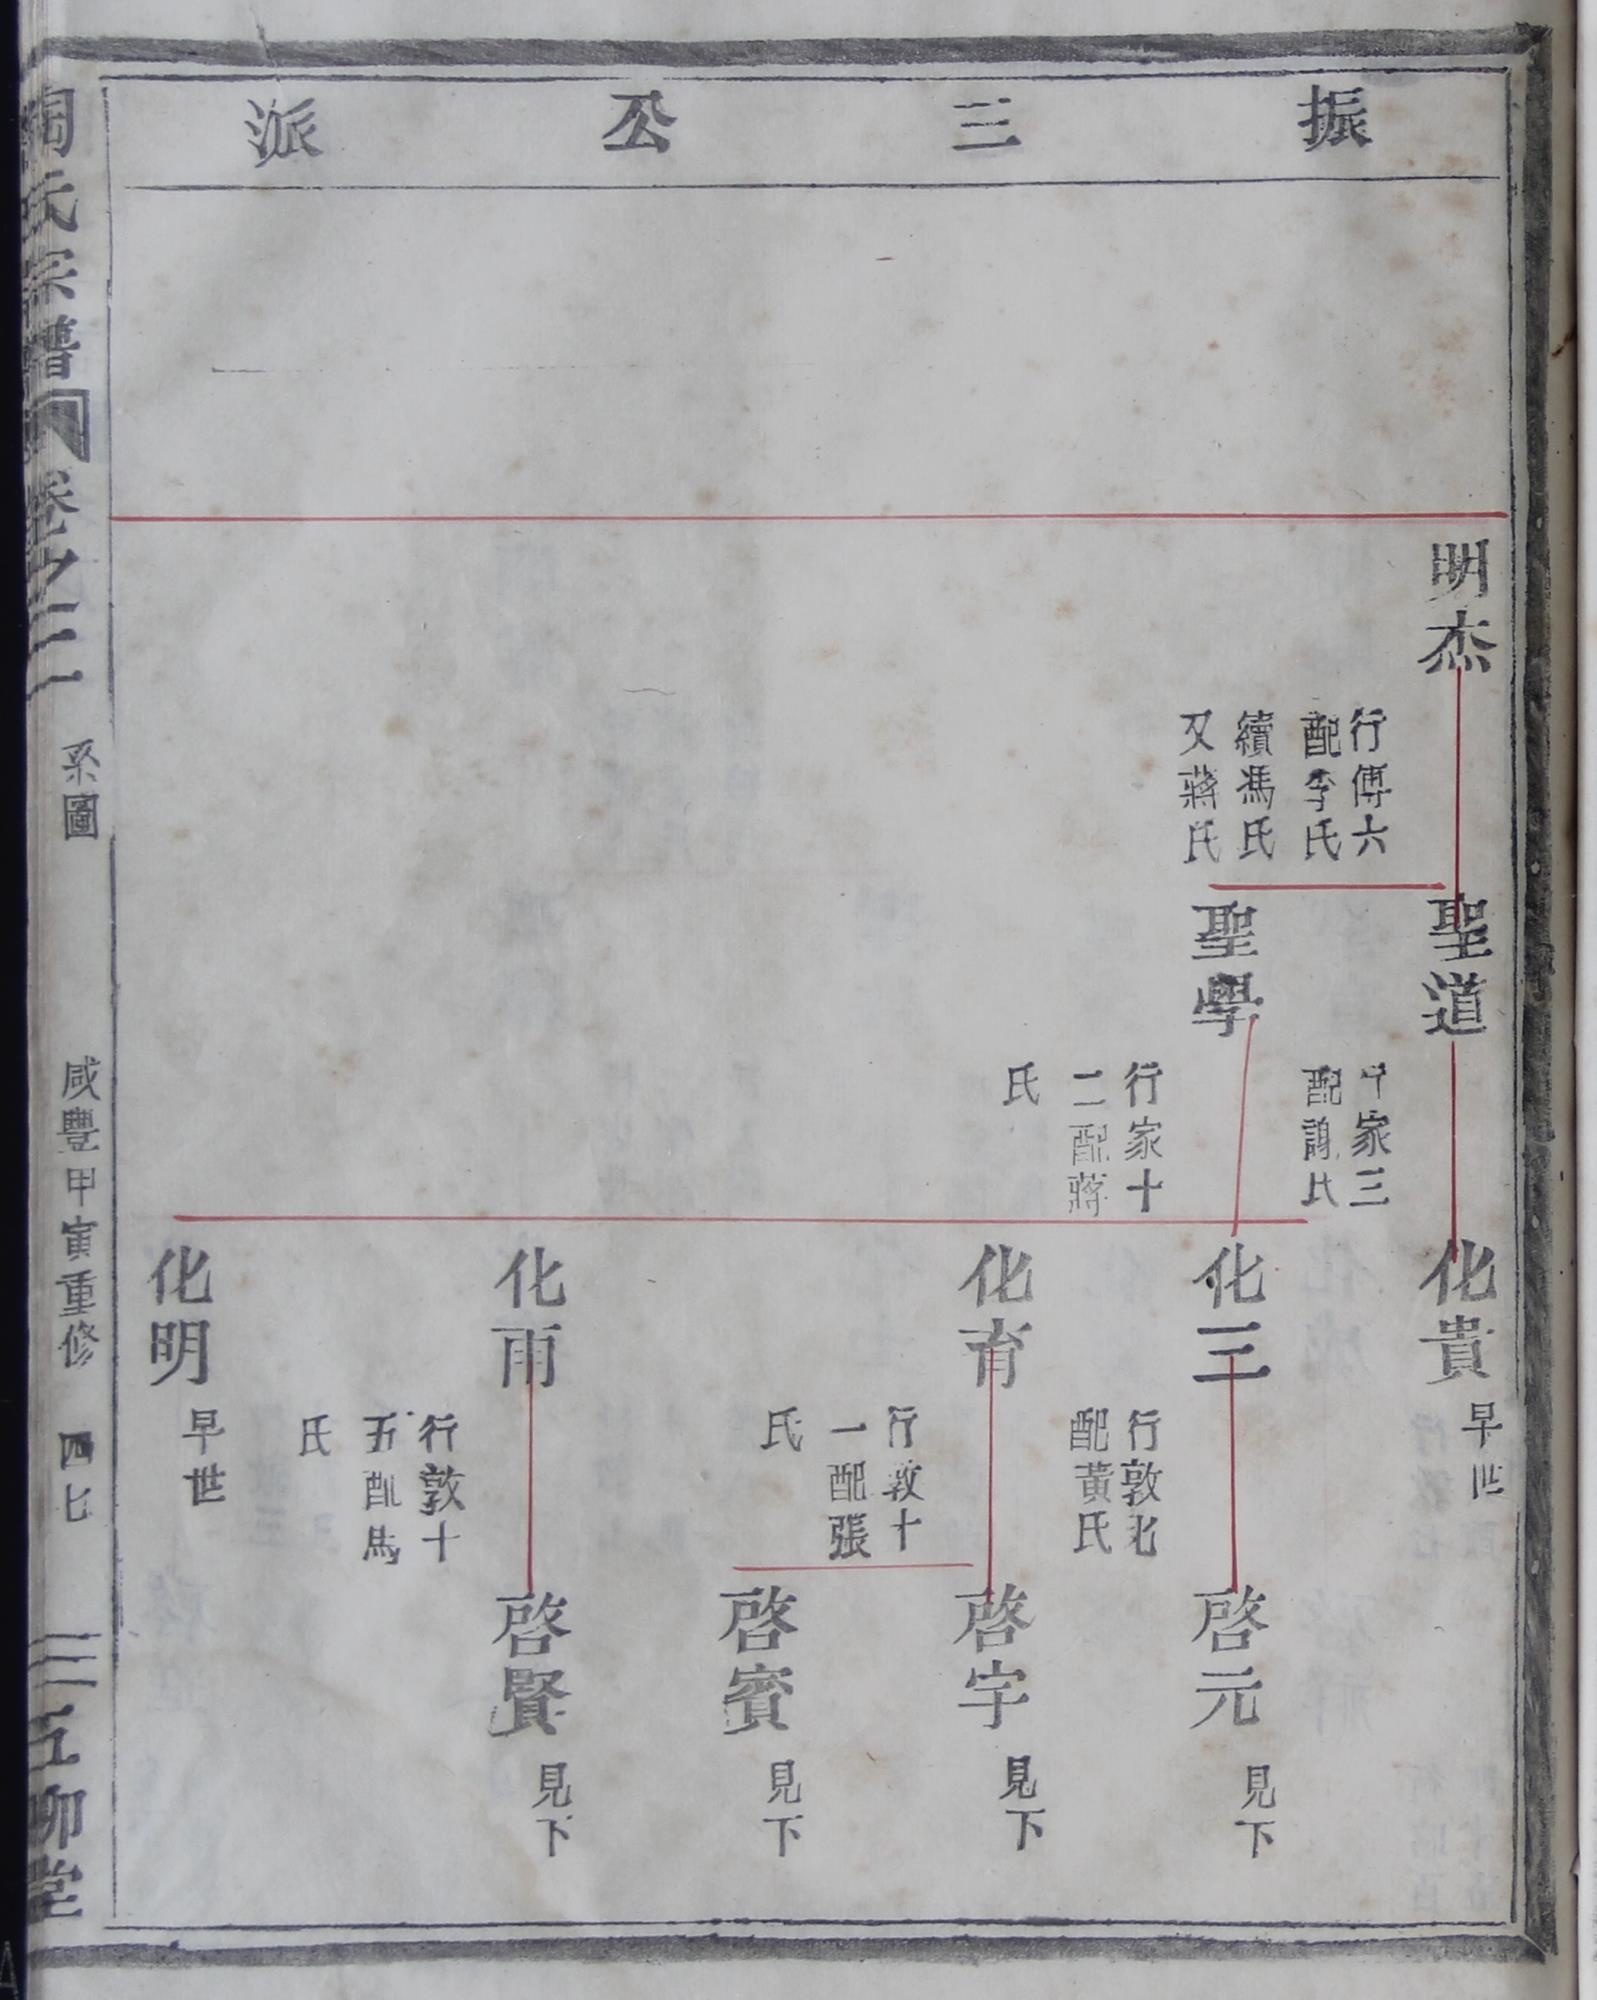 振三公派
明杰
行傳六
配李氏
續馮氏
又蔣氏
聖道
家三
配謝氏
聖學
行家十
二配蔣
氏
化貴
早世
化三
行敦九
配黃氏
化育
行敦十
一配張
氏
化雨
行敦十
五配馬
氏
化明
早世
啓元
見下
啓宇
見下
啓賓
見下
啓賢
見下
氏宗譜
卷之二
系圖
咸豐甲寅重修
四七
五柳堂